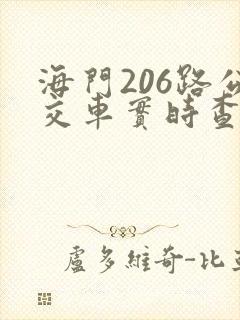 海門206路公
交車實時查
盧多維奇-比亞